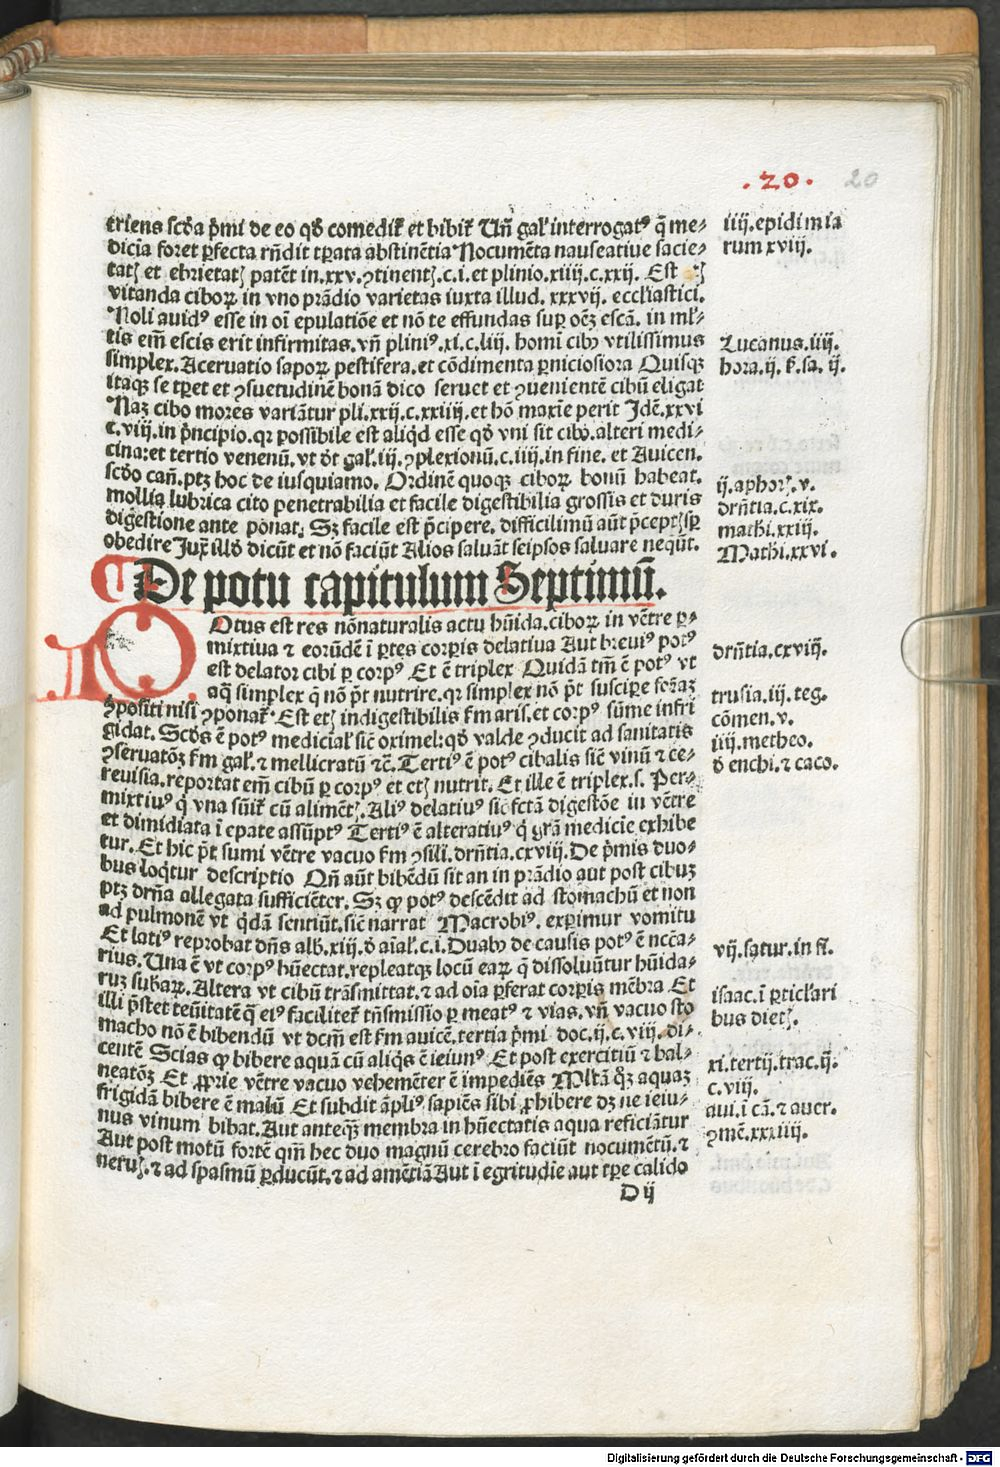 .20. 20
triens scđa p̄mi de eo qđ comediť et bibiť Vñ gaľ interrogatꝰ q̄ me-
dicīa foret ꝑfecta rñdit tꝑata abstinētia Nocumēta nauseatiue sacie-
tatꝫ et ebrietatꝫ patēt in.xxv.ꝯtinentꝫ.c.i.et plinio.xiiij.c.xxij. Est
vitanda ciboꝝ in vno prādio varietas iuxta illud.xxxvij.eccľiastici.
Noli auidꝰ esse in oī epulatiōe et nō te effundas suꝑ oēꝫ escā.in mľ-
tis em̄ escis erit infirmitas.vñ pliniꝰ.xi.c.liij.homi cibꝰ vtilissimus
simplex.Aceruatio sapoꝝ pestifera.et cōdimenta ꝑniciosiora Quisqꝫ
itaqꝫ se tꝑet et ꝯsuetudinē bonā dico seruet et ꝯuenientē cibū eligat
Naꝫ cibo mores variātur pli.xxij.c.xxiiij.et hō maxīe perit Idē.xxvi
c.viij.in p̄ncipio.qꝛ possibile est aliq̇d esse qđ vni sit cibꝰ.alteri medi-
cina:et tertio venenū.vt đt gaľ.ij.ꝯplexionū.c.iiij.in fine.et Auicen.
scđo cañ.ptꝫ hoc de iusquiamo.Ordinē quoqꝫ ciboꝝ bonū habeat.
mollia lubrica cito penetrabilia et facile digestibilia grossis et duris
digestione ante ponat:Sꝫ facile est p̄cipere.difficilimū aūt p̄ceptꝫ sꝑ
obedire Juꝝ illđ dicūt et nō faciūt Alios saluāt seipsos saluare neqūt.
De potu capitulum Septimū.
Otus est res nōnaturalis actu hūida.ciboꝝ in vētre ꝑ-
mixtiua ⁊ eorūdē ī ꝑtes corꝑis delatiua Aut breuiꝰ potꝰ
est delator cibi ꝑ corpꝰ Et ē triplex Quidā tm̄ ē potꝰ vt
aq̄ simplex q̄ nō p̄t nutrire.qꝛ simplex nō p̄t suscipe formaꝫ
ꝯpositi nisi ꝯponať.Est etꝫ indigestibilis ẜm aris.et corpꝰ sūme infri
gidat.Scđs ē potꝰ medicinaľ sic̄ oximel:qđ valde ꝯducit ad sanitatis
ꝯseruatōꝫ ẜm gaľ.⁊ mellicratū ⁊c̄.Tertiꝰ ē potꝰ cibalis sic̄ vinū ⁊ ce-
reuisia.reportat em̄ cibū ꝑ corpꝰ et etꝫ nutrit.Et ille ē triplex.s. Per-
mixtiuꝰ q̇ vna sūiť cū alimētꝫ.Aliꝰ delatiuꝰ sic fctā digestōe in vētre
et dimidiata ī epate assūptꝰ Tertiꝰ ē alteratiuꝰ q̇ grā medicīe exhibe
tur.Et hic p̄t sumi vētre vacuo ẜm ꝯsili.drñtia.cxviij.De p̄mis duo-
bus loq̇tur descriptio Qñ aūt bibēdū sit an in prādio aut post cibuꝫ
ptꝫ drña allegata sufficiēter.Sꝫ ꝙ potꝰ descēdit ad stomachū et non
ad pulmonē vt q̇dā sentiūt.sic̄ narrat Macrobiꝰ.exꝑimur vomitu
Et latiꝰ reprobat dñs alb̄.xiij.đ aīaľ.c.i.Duabꝰ de causis potꝰ ē nccā-
rius.Una ē vt corpꝰ hūectat.repleatqꝫ locū eaꝝ q̄ dissoluūtur hūida-
ruꝫ subaꝝ.Altera vt cibū trāsmittat.⁊ ad oīa ꝑferat corꝑis mēbra Et
illi p̄stet teūitatē q̇ eiꝰ facilitet tñsmissio ꝑ meatꝰ ⁊ vias.vñ vacuo sto
macho nō ē bibendū vt dcm̄ est ẜm auicē.tertia p̄mi doc.ij.c.viij.di-
centē Scias ꝙ bibere aquā cū aliq̇s ē ieiunꝰ Et post exercitiū ⁊ bal-
neatōꝫ Et ꝓprie vētre vacuo vehemēter ē impediēs Mľtā q̊ꝫ aquaꝫ
frigidā bibere ē malū Et subdit āpliꝰ.sapiēs sibi ꝓhibere dꝫ ne ieiu-
nus vinum bibat.Aut anteqꝫ membra in hūectatis aqua reficiātur
Aut post motū fortē qm̄ hec duo magnū cerebro faciūt nocumētū.⁊
neruꝫ.⁊ ad spasmū ꝑducūt.⁊ ad amētiā Aut ī egritudīe aut tꝑe calido
D ij
iiij.epidimia
rum xviij.
Lucanus.iiij.
hora.ij. ẜ.sa.ij.
ij.aphorꝫ.v.
drñtia.c.xix.
mathi.xxiij.
Mathi.xxvi.
drñtia.cxviij.
trusia.iij.teg.
cōmen.v.
iiij.metheo.
đ enchi.⁊ caco.
vij.satur.in fi.
isaac.ī ꝑticľari
bus dietꝫ.
xi.tertij.trac.ij.
c.viij.
aui.ī cā.⁊ auer.
ꝯmē.xxxiiij.
Digitalisierung gefördert durch die Deutsche Forschungsgemeinschaft - DFG